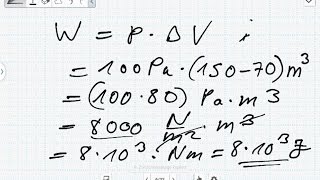 W = p · Δ V i
= 100 Pa · (150-70) m³
= (100 · 80) Pa · m 3
= 8000 N/m² · m³
= 8 · 10³ · Nm = 8 · 10³ J